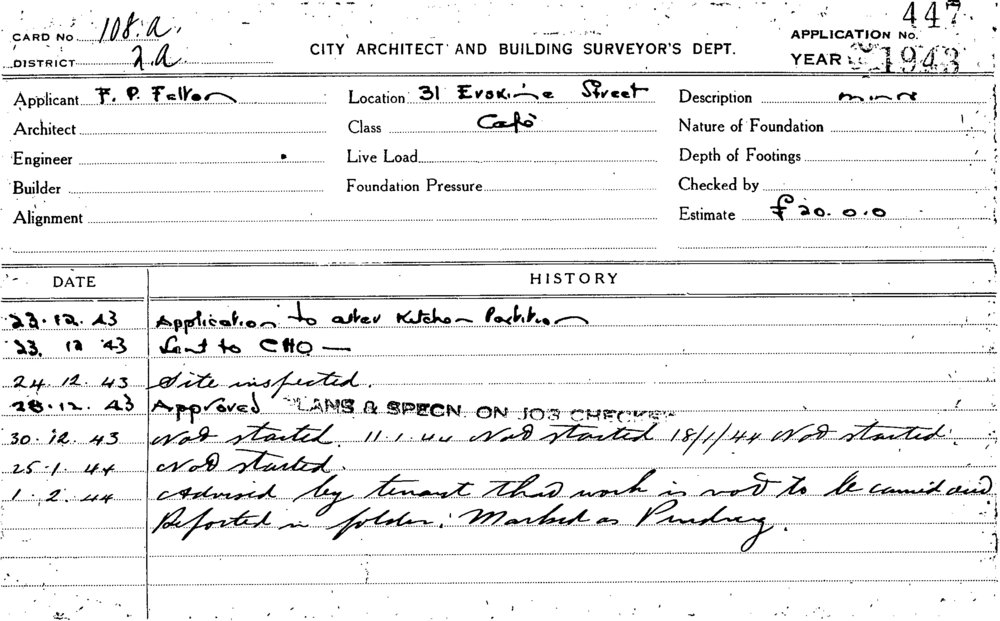 CARD No 108.a.
447
APPLICATION No.
DISTRICT 2a
CITY ARCHITECT AND BUILDING SURVEYOR'S DEPT.
YEAR 1943
Applicant F. P. Felton Location 31 Erskine Street Description minor
Architect Class Café Nature of Foundation
Engineer Live Load Depth of Footings
Builder Foundation Pressure Checked by
Alignment Estimate £20.0.0
DATE HISTORY
23.12.43 Application to alter Kitchen Partition
23. 12 43 Sent to CHO —
24.12.43 Site inspected.
28.12.43 Approved PLANS & SPECN. ON JOB CHECKED
30.12.43 Not started. 11.1.44 Not started 18/1/44 Not started.
25.1.44 Not started.
1.2.44 Advised by tenant that work is not to be carried out.
Reported in folder. Marked as Pending.